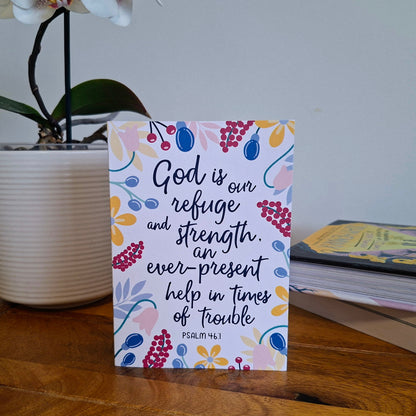 God is our
refuge
and strength,
an
ever-present
help in times
of trouble
PSALM 46:1